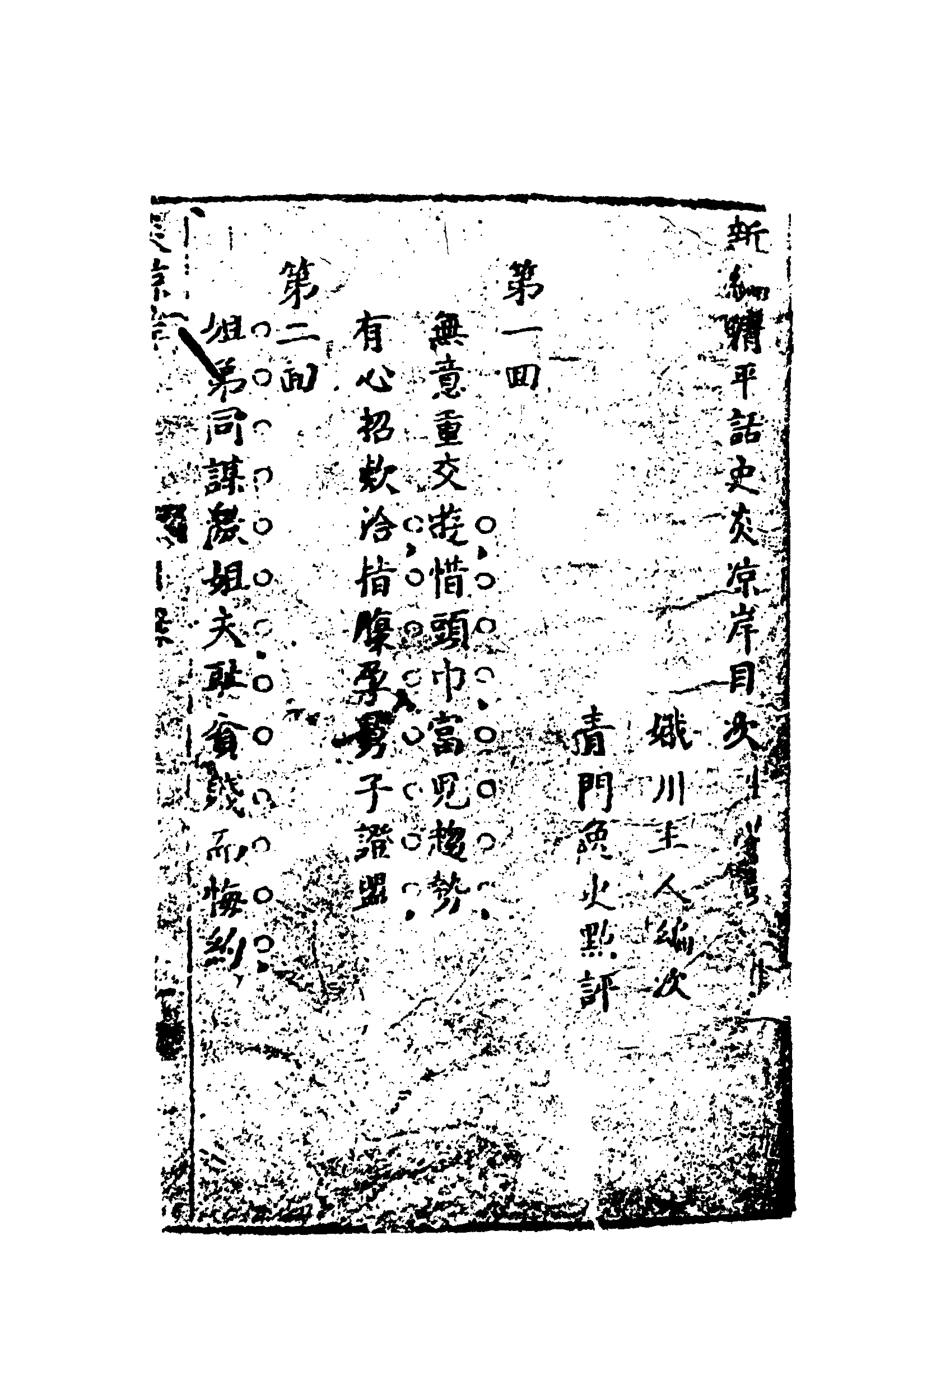 新編晴平話史炎凉岸目次
娥川主人編次
青門逸史點評
第一回
無意重交遊惜頭巾富兒趨勢
有心招歎洽指腹孕男子證盟
第二回
姐弟同謀羨姐夫耻貧賤而悔約